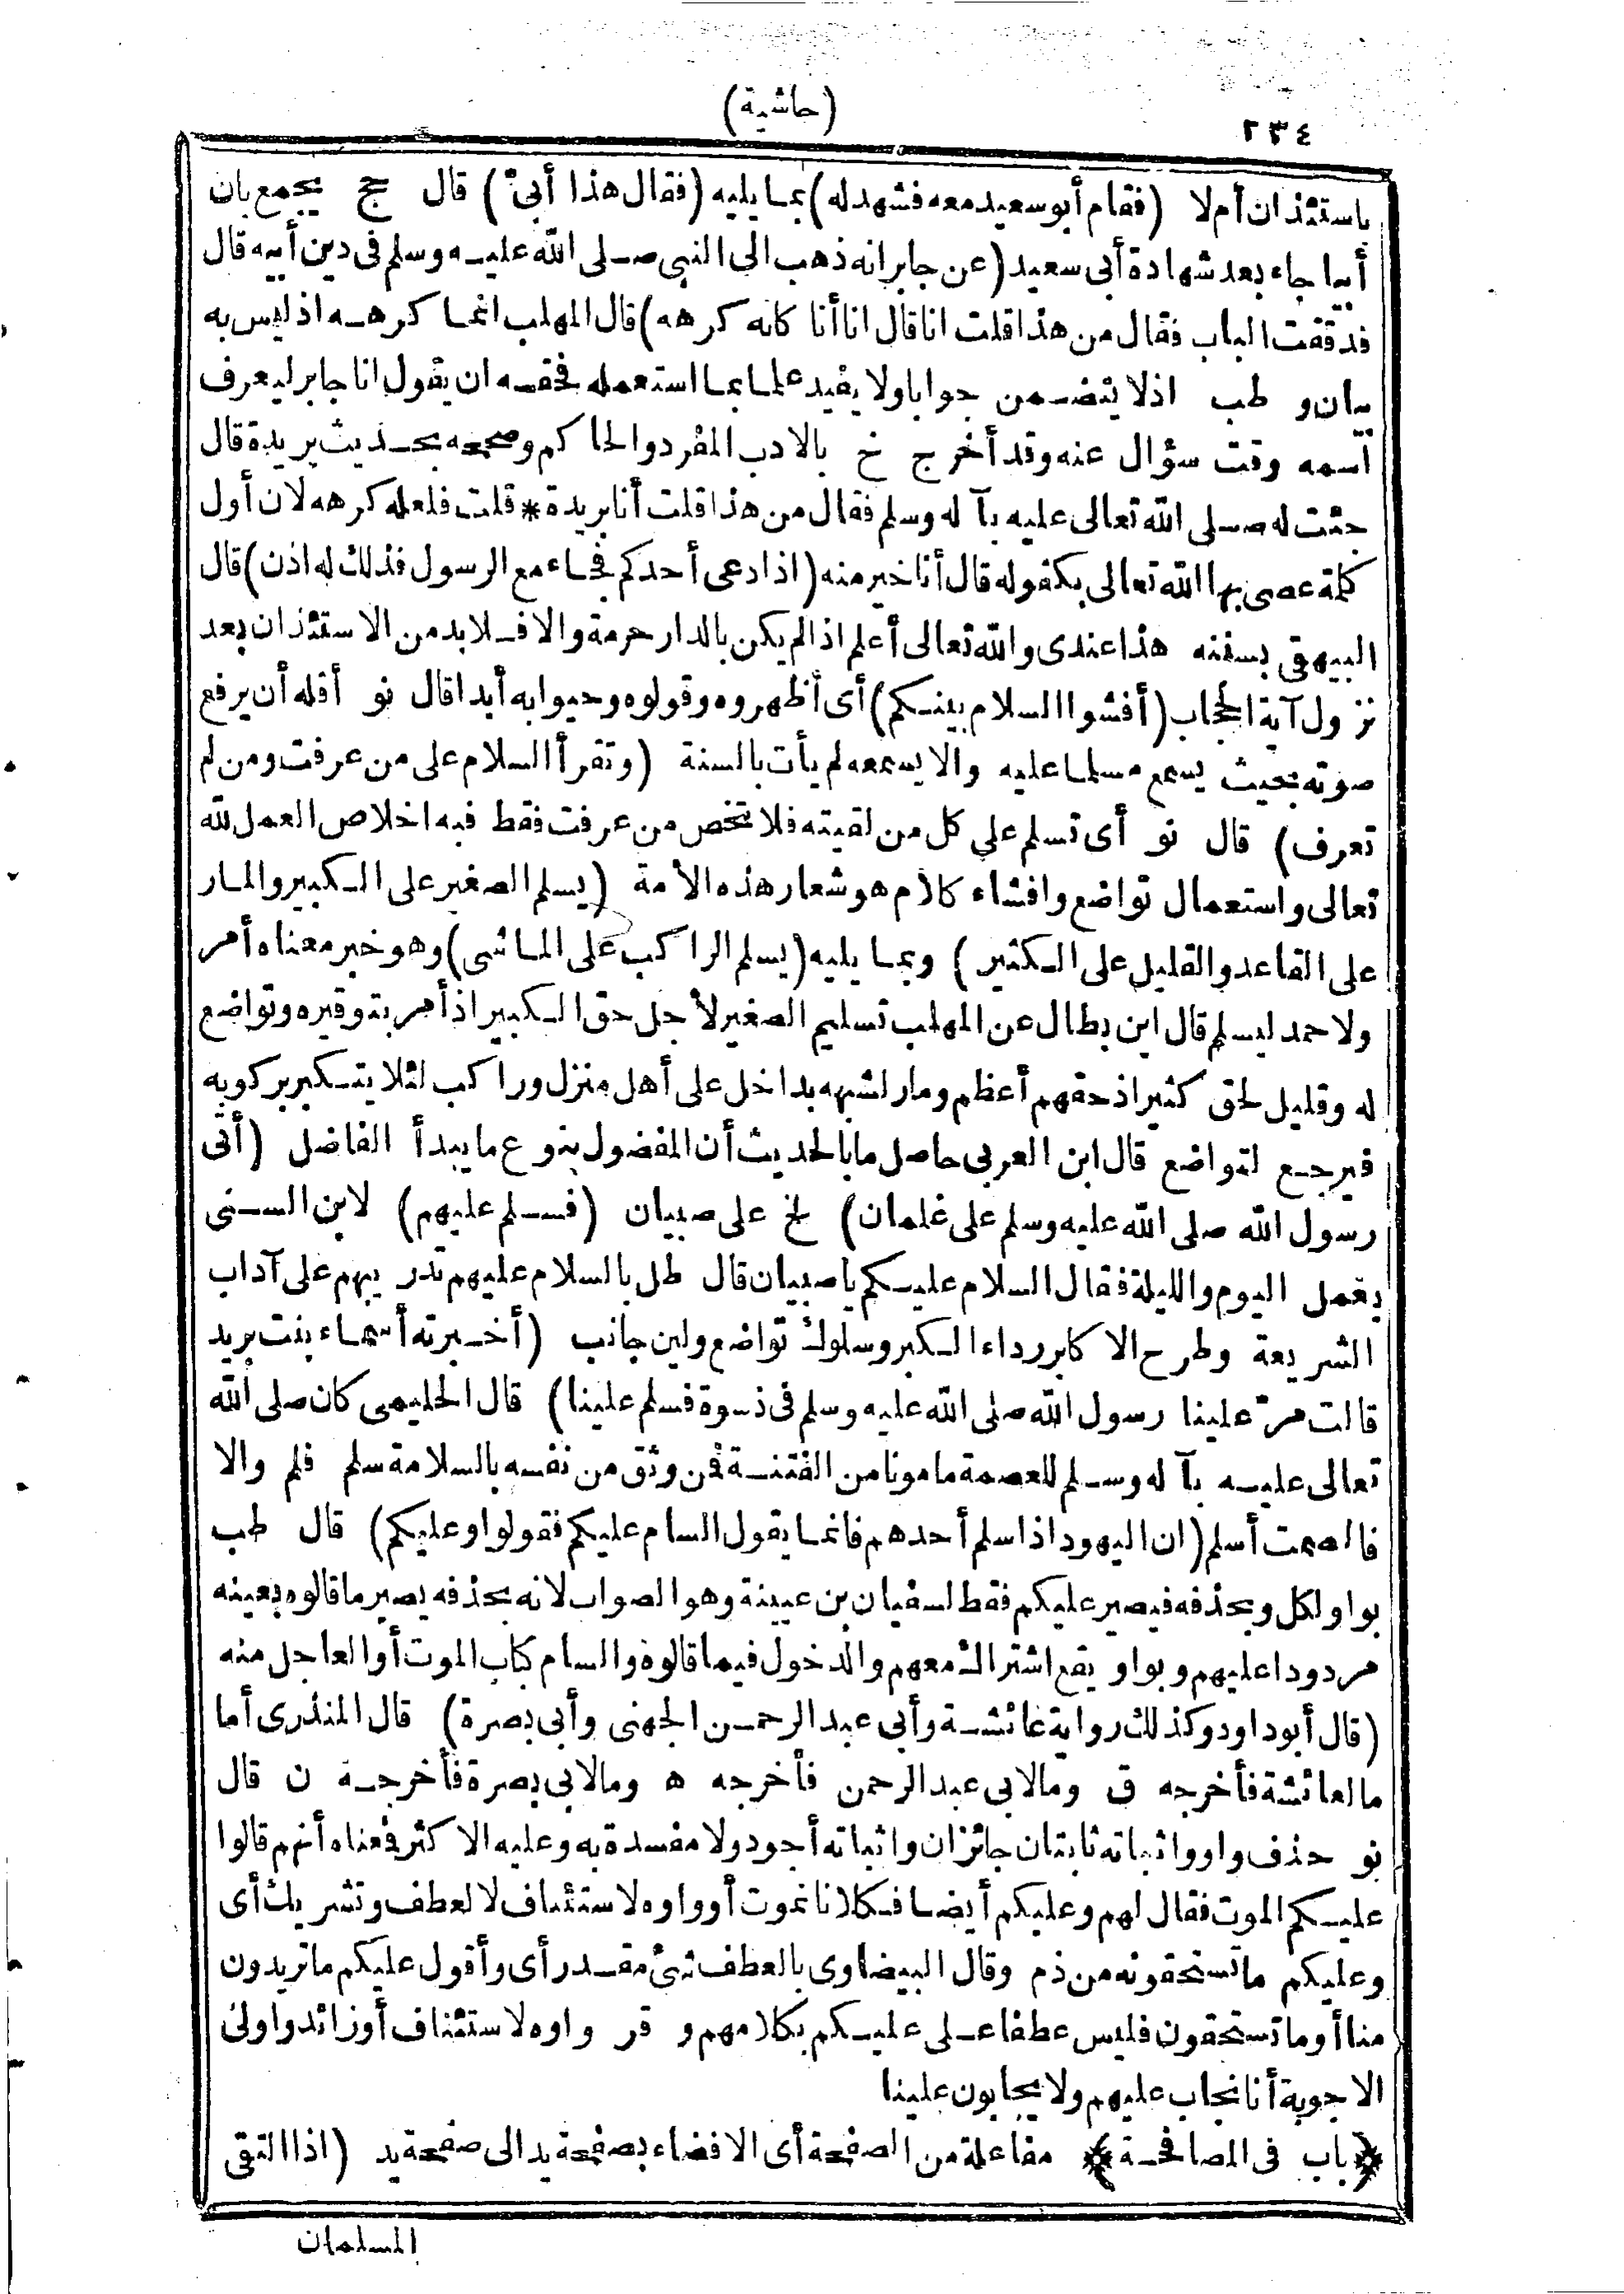 (حاشية)
٢٣٤
باستئذان أم لا (فقام أبو سعيد معه فشهد له) بما يليه (فقال هذا أبىّ) قال حج يجمع بان
أبيا جاء بعد شهادة أبى سعيد (عن جابر انه ذهب الى النبى صلى الله عليه وسلم فى دين أبيه قال
فدققت الباب فقال من هذا قلت انا قال انا أنا كانه كرهه) قال المهلب انما كرهه اذ ليس به
بيان و طب اذ لا يتضمن جوابا ولا يفيد علما بما استعمله فحقه ان يقول انا جابر ليعرف
اسمه وقت سؤال عنه وقد أخرج خ بالادب المفرد والحاكم وصححه بحديث بريدة قال
جئت له صلى الله تعالى عليه بآله وسلم فقال من هذا قلت أنا بريدة * قلت فلعله كرهه لان أول
كلمة عصى بها الله تعالى بكقوله قال أنا خير منه (اذا دعى أحدكم فجاء مع الرسول فذلك له اذن) قال
البيهقى بسننه هذا عندى والله تعالى أعلم اذا لم يكن بالدار حرمة والا فلا بد من الاستئذان بعد
نزول آية الحجاب (أفشوا السلام بينكم) أى أظهروه وقولوه وحيوا به أبدا قال نو أقله أن يرفع
صوته بحيث يسمع مسلما عليه والا يسمعه لم يأت بالسنة (وتقرأ السلام على من عرفت ومن لم
تعرف) قال نو أى تسلم على كل من لقيته فلا تخص من عرفت فقط فبه اخلاص العمل لله
تعالى واستعمال تواضع وافشاء كلام هو شعار هذه الأمة (يسلم الصغير على الكبير والمار
على القاعد والقليل على الكثير) وبما يليه (يسلم الراكب على الماشى) وهو خبر معناه أمر
ولاحمد ليسلم قال ابن بطال عن المهلب تسليم الصغير لأجل حق الكبير اذ أمر بتوقيره وتواضع
له وقليل لحق كثير اذ حقهم أعظم ومار لشبهه بداخل على أهل منزل وراكب لئلا يتكبر بركوبه
فيرجع لتواضع قال ابن العربى حاصل ما بالحديث أن المفضول بنوع ما يبدأ الفاضل (أتى
رسول الله صلى الله عليه وسلم على غلمان) لخ على صبيان (فسلم عليهم) لابن السنى
بعمل اليوم والليلة فقال السلام عليكم يا صبيان قال طل بالسلام عليهم تدريبهم على آداب
الشريعة وطرح الاكابر رداء الكبر وسلوك تواضع ولين جانب (أخبرته أسماء بنت يريد
قالت مرّ علينا رسول الله صلى الله عليه وسلم فى نسوة فسلم علينا) قال الحليمى كان صلى الله
تعالى عليه بآله وسلم للعصمة مامونا من الفتنة فمن وثق من نفسه بالسلامة سلم فلم والا
فالصمت أسلم (ان اليهود اذا سلم أحدهم فانما يقول السام عليكم فقولوا وعليكم) قال طب
بواو لكل وبحذفه فيصير عليكم فقط لسفيان بن عيينة وهو الصواب لانه بحذفه يصير ما قالوه بعينه
مردودا عليهم وبواو يقع اشتراك معهم والدخول فيما قالوه والسام كباب الموت أو العاجل منه
(قال أبو داود وكذلك رواية عائشة وأبى عبد الرحمن الجهنى وأبى بصرة) قال المنذرى أما
ما لعائشة فأخرجه ق وما لابى عبد الرحمن فأخرجه ه وما لابى بصرة فأخرجه ن قال
نو حذف واو واثباته ثابتان جائزان واثباته أجود ولا مفسدة به وعليه الاكثر فمعناه أنهم قالوا
عليكم الموت فقال لهم وعليكم أيضا فكلانا نموت أو واوه لاستئناف لا لعطف وتشريك أى
وعليكم ما تستحقونه من ذم وقال البيضاوى بالعطف شئ مقدر أى وأقول عليكم ما تريدون
منا أو ما تستحقون فليس عطفا على عليكم بكلامهم و قر واوه لاستئناف أو زائد واولى
الاجوبة أنا نجاب عليهم ولا يجابون علينا
﴿باب فى المصافحة﴾ مفاعلة من الصفحة أى الافضاء بصفحة يد الى صفحة يد (اذا التقى
المسلمان